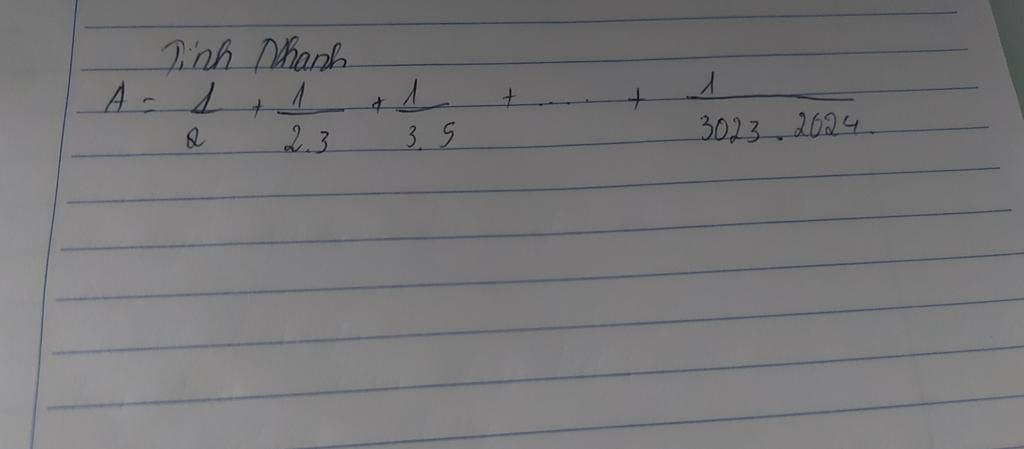 Tính Nhanh
A = 1/2 + 1/2.3 + 1/3.5 + .... + 1/3023.2024.